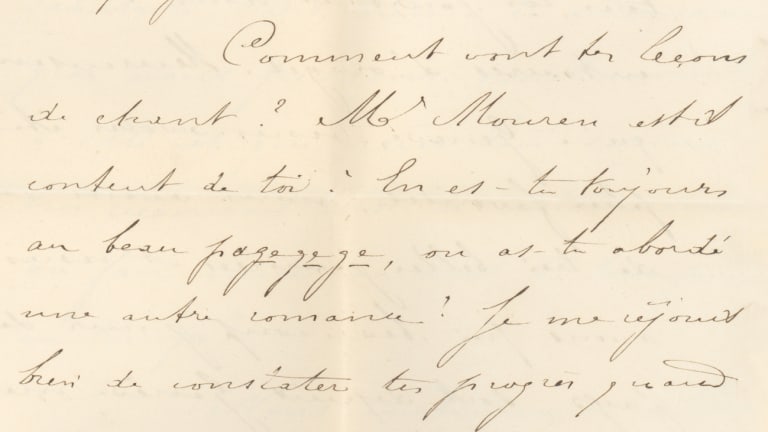 Comment vont tes leçons
de chant ? Mr Mouren est-il
content de toi ? En es-tu toujours
au beau pagegegege, ou as-tu abordé
une autre romance ? Je me réjouis
bien de constater tes progrès quand